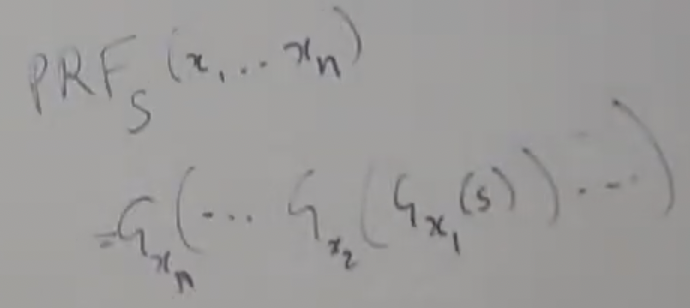 PRF_S (x_1 .. x_n)
= G_{x_n} ( ... G_{x_2} ( G_{x_1} (s) ) ... )